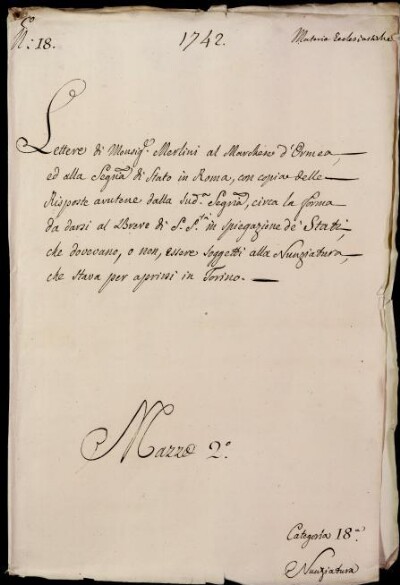 N.º 18.
1742.
Materie Ecclesiastiche
Lettere di Monsig.r Merlini al Marchese d'Ormea,
ed alla Segria di Stato in Roma, con copia delle
Risposte avutone dalla sud.a Segria, circa la forma
da darsi al Breve di S. S.tà in spiegazione de' Stati,
che dovevano, o non, essere soggetti alla Nunziatura,
che stava per aprirsi in Torino.
Mazzo 2.º
Categoria 18.a
Nunziatura